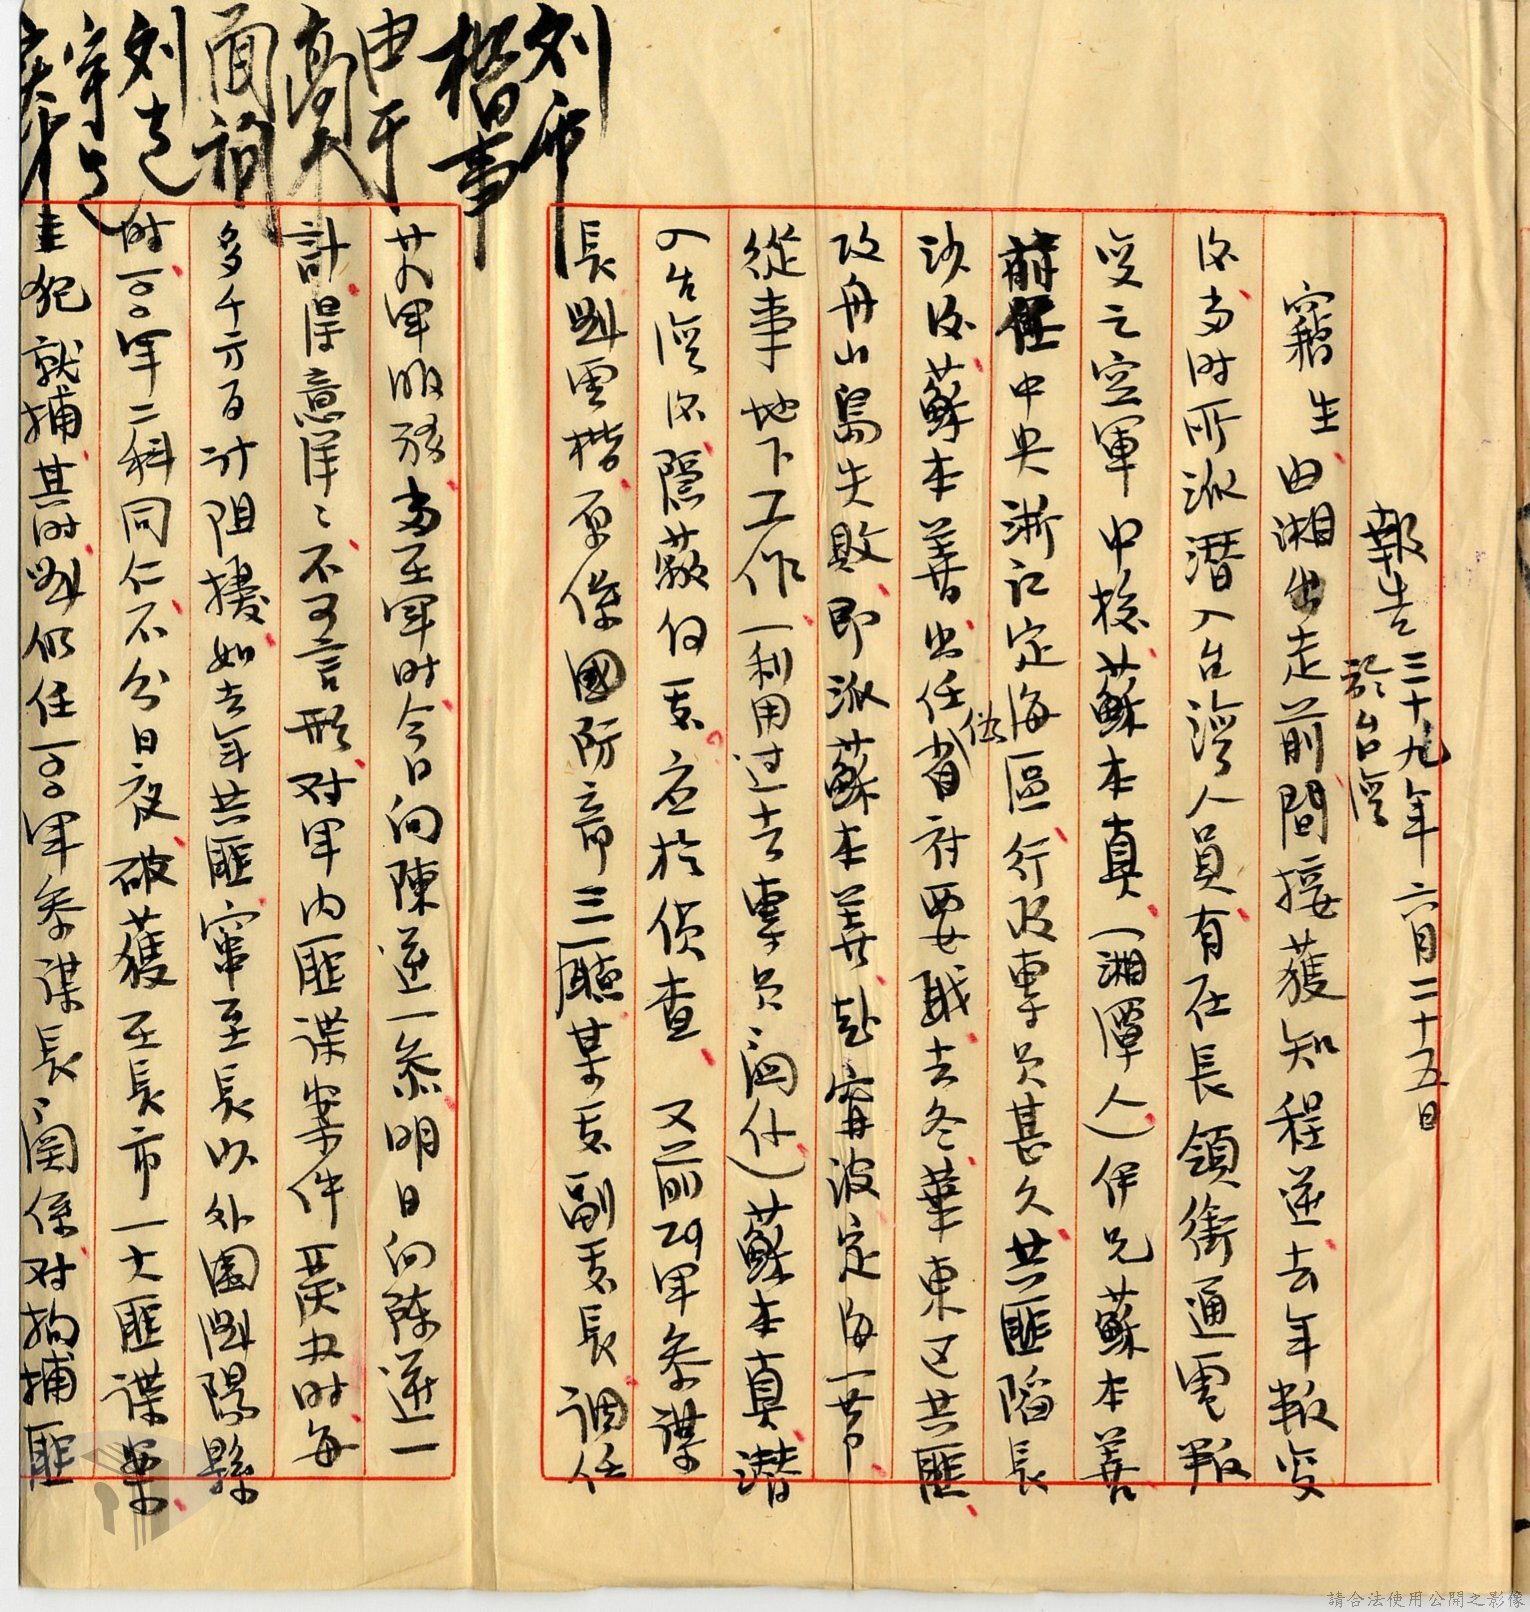 報告 三十九年六月二十五日
於台灣
竊生由湘出走前間接獲知程逆去年叛變
後當時所派潛入台灣人員有在長領銜通電叛
變之空軍中校蘇本真(湘潭人)伊兄蘇本善
前任中央浙江定海區行政專員甚久共匪陷長
沙後蘇本善出任偽省府要職去冬華東區共匪
攻舟山島失敗即派蘇本善赴寧波定海一帶
從事地下工作(利用过去專員關係)蘇本真潛
入台灣後隱蔽何處应於偵查 又前 軍參謀
長劉雲楷原係國防部三廳某處副處長調任
軍服務當至軍时今日向陳逆一參明日向陳逆一
計得意洋洋不可言形对軍內匪諜案件厥功时每
多千方百计阻擾如去年共匪竄至長以外圍浏陽縣
时一〇〇軍二科同仁不分日夜破獲至長市一大匪諜案
主犯就捕其时劉仍任一〇〇軍參謀長關係对拘捕匪
刘雲
楷事
由于
面詢